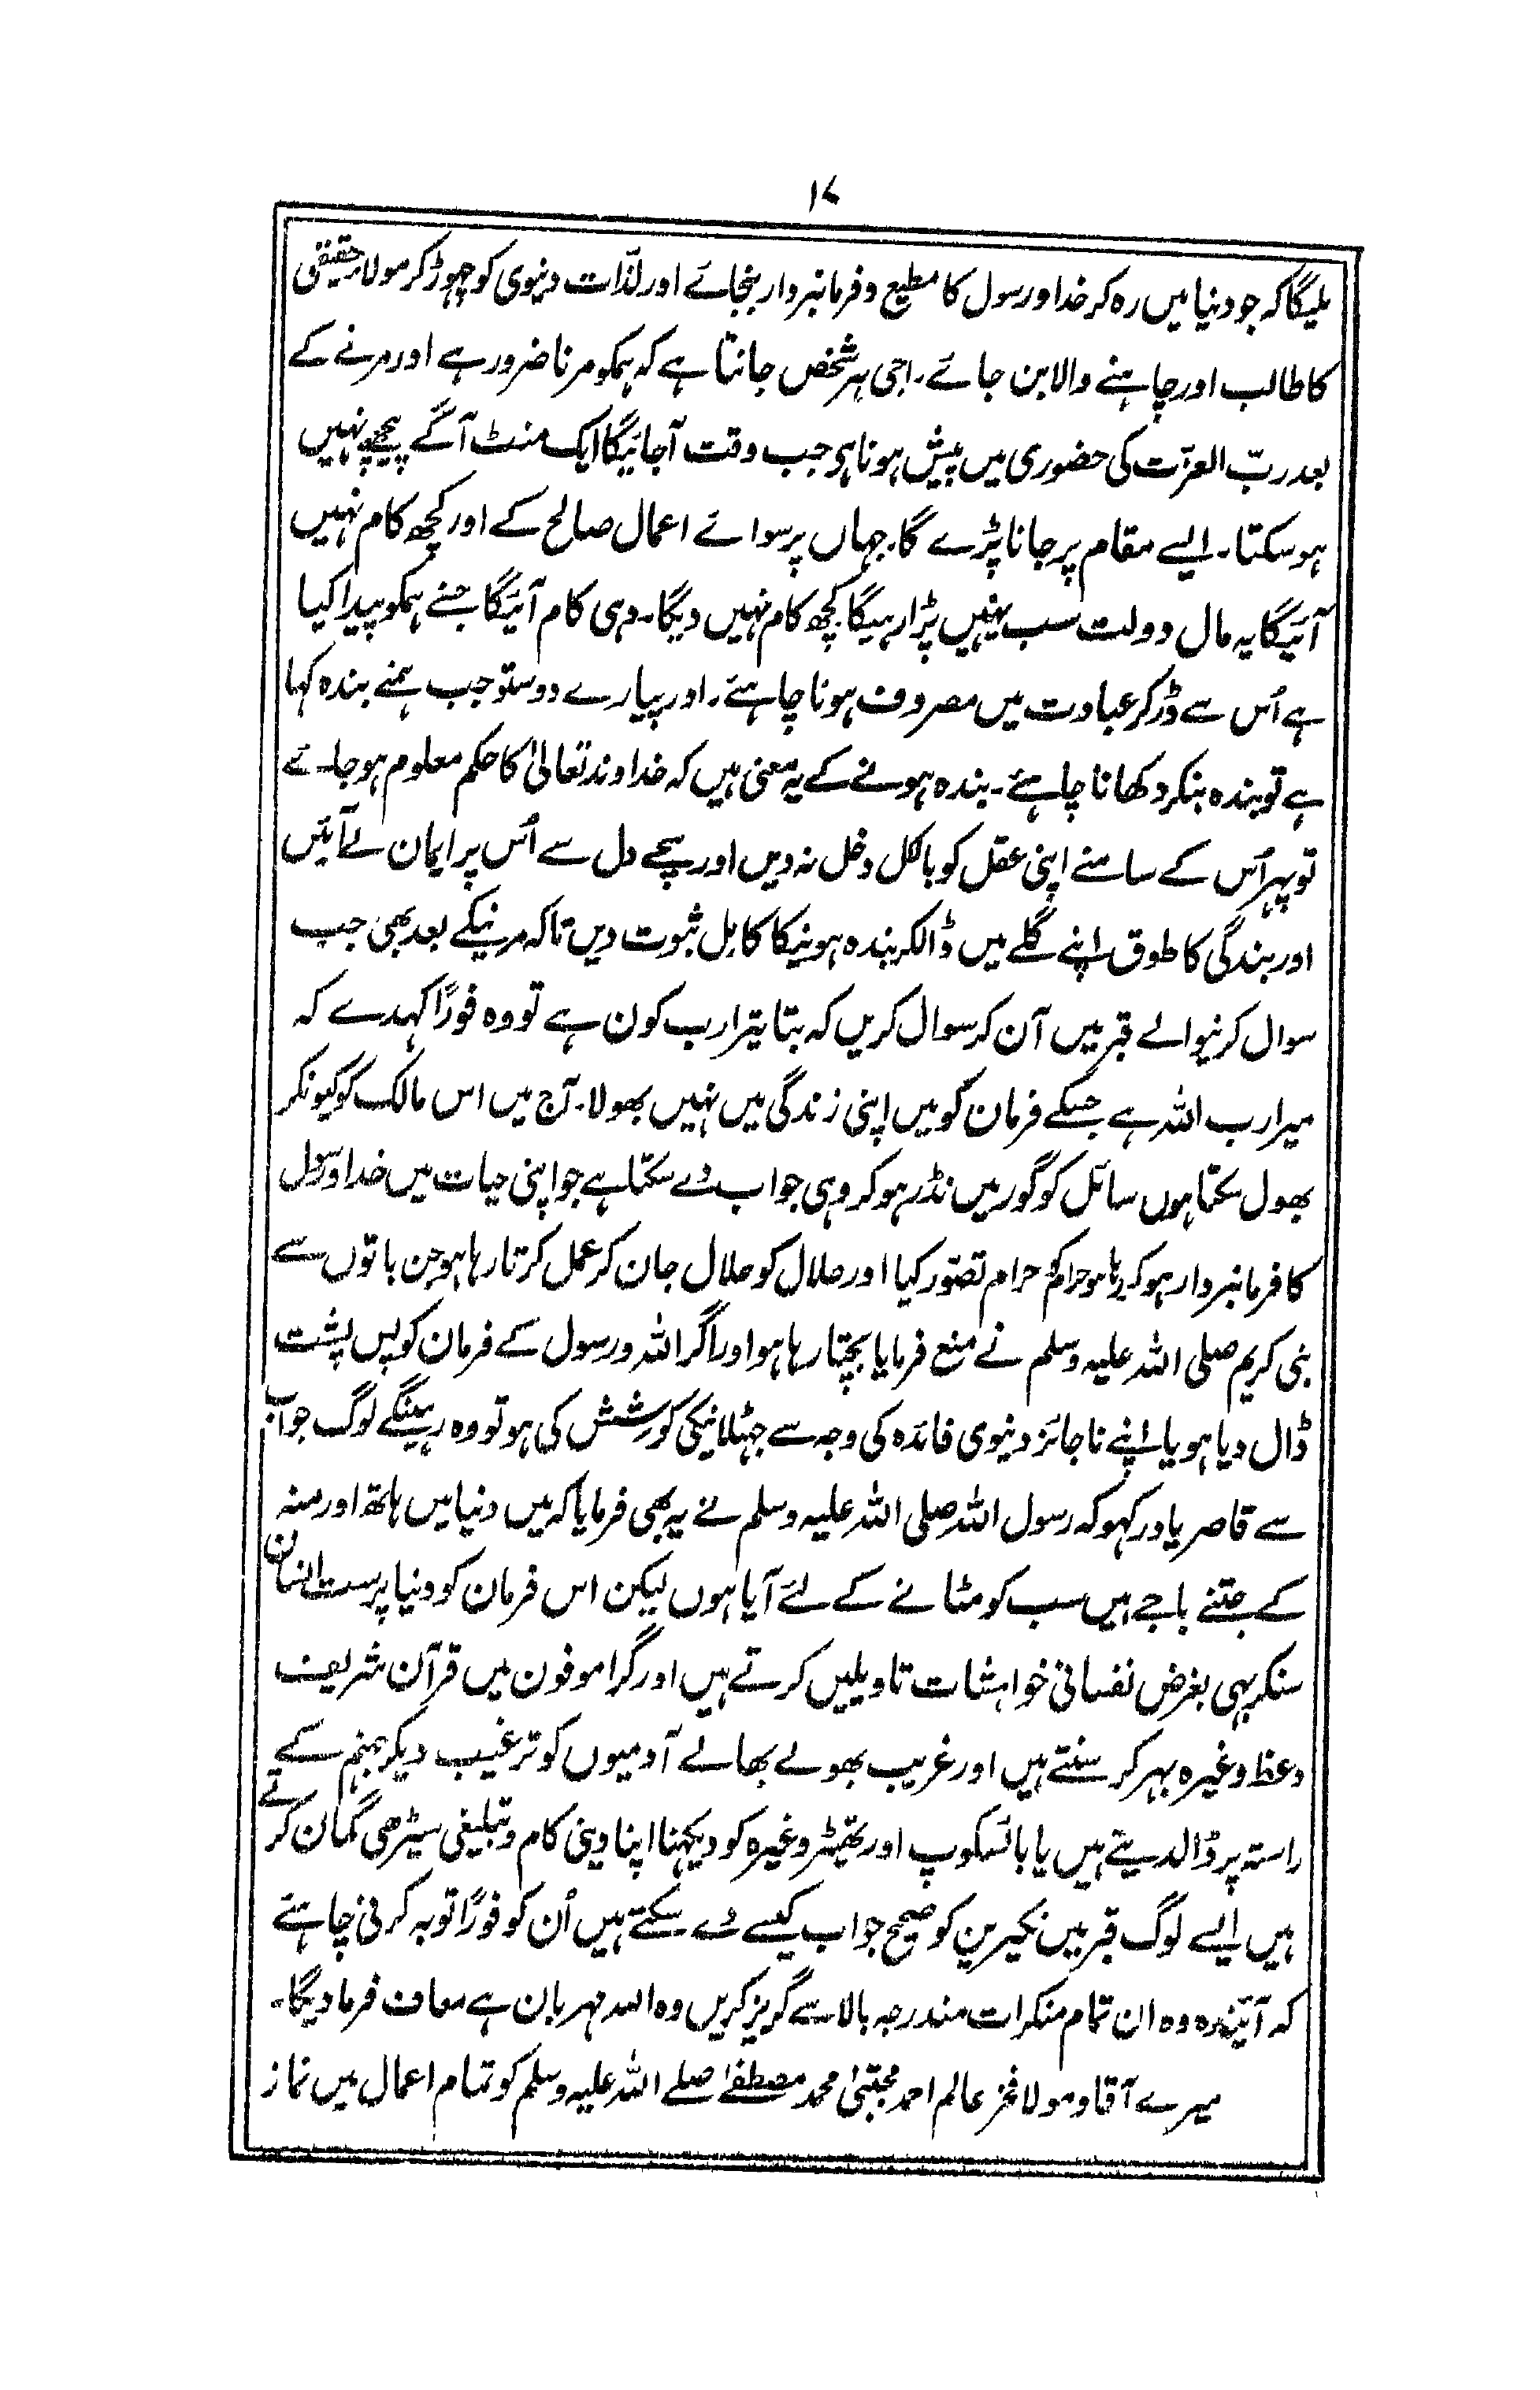 ۱۷
ملیگا کہ جو دنیا میں رہ کر خدا و رسول کا مطیع و فرمانبردار بنجائے اور لذّات دنیوی کو چہوڑ کر مولائے حقیقی
کا طالب اور چاہنے والا بن جائے۔ اجی ہر شخص جانتا ہے کہ ہمکو مرنا ضرور ہے اور مرنے کے
بعد ربّ العزّت کی حضوری میں پیش ہونا ہی جب وقت آجائیگا ایک منٹ آگے پیچھے نہیں
ہو سکتا۔ ایسے مقام پر جانا پڑے گا۔ جہاں پر سوائے اعمال صالح کے اور کچھ کام نہیں
آئیگا یہ مال دولت سب یہیں پڑا رہیگا کچھ کام نہیں دیگا۔ وہی کام آئیگا جسنے ہمکو پیدا کیا
ہے اُس سے ڈر کر عبادت میں مصروف ہونا چاہئے۔ اور پیارے دوستو جب ہمنے بندہ کہا
ہے تو بندہ بنکر دکھانا چاہئے۔ بندہ ہونے کے یہ معنی ہیں کہ خداوند تعالیٰ کا حکم معلوم ہو جائے
تو پہر اُس کے سامنے اپنی عقل کو بالکل دخل نہ دیں اور سچے دل سے اُس پر ایمان لے آئیں
اور بندگی کا طوق اپنے گلے میں ڈالکر بندہ ہونیکا کامل ثبوت دیں تاکہ مرنیکے بعد بھی جب
سوال کرنیوالے قبر میں آن کر سوال کریں کہ بتا تیرا رب کون ہے تو وہ فورًا کہدے کہ
میرا رب اللہ ہے جسکے فرمان کو میں اپنی زندگی میں نہیں بھولا۔ آج میں اس مالک کو کیونکر
بھول سکتا ہوں سائل کو گور میں نڈر ہو کر وہی جواب دے سکتا ہے جو اپنی حیات میں خدا و رسول
کا فرمانبردار ہو کر رہا ہو حرام کو حرام تصوّر کیا اور حلال کو حلال جان کر عمل کرتا رہا ہو جن باتوں سے
نبی کریم صلی اللہ علیہ وسلم نے منع فرمایا بچتا رہا ہو اور اگر اللہ و رسول کے فرمان کو پس پشت
ڈال دیا ہو یا اپنے ناجائز دنیوی فائدہ کی وجہ سے جہٹلانیکی کوشش کی ہو تو وہ رہینگے لوگ جواب
سے قاصر یاد رکہو کہ رسول اللہ صلی اللہ علیہ وسلم نے یہ بھی فرمایا کہ میں دنیا میں ہاتھ اور منہ
کے جتنے باجے ہیں سب کو مٹانے کے لئے آیا ہوں لیکن اس فرمان کو دنیا پرست انسان
سنکر بہی بغرض نفسانی خواہشات تاویلیں کرتے ہیں اور گراموفون میں قرآن شریف
وعظ وغیرہ بہر کر سنتے ہیں اور غریب بھولے بھالے آدمیوں کو ترغیب دیکر جہنم کے
راستہ پر ڈالدیتے ہیں یا بائسکوپ اور تھیٹر وغیرہ کو دیکہنا اپنا دینی کام و تبلیغی سیڑھی گمان کرتے
ہیں ایسے لوگ قبر میں نکیرین کو صحیح جواب کیسے دے سکتے ہیں اُن کو فورًا توبہ کرنی چاہئے
کہ آئیندہ وہ ان تمام منکرات مندرجہ بالا سے گریز کریں وہ اللہ مہربان ہے معاف فرما دیگا۔
میرے آقا و مولا فخر عالم احمد مجتبیٰ محمد مصطفےٰ صلے اللہ علیہ وسلم کو تمام اعمال میں نماز